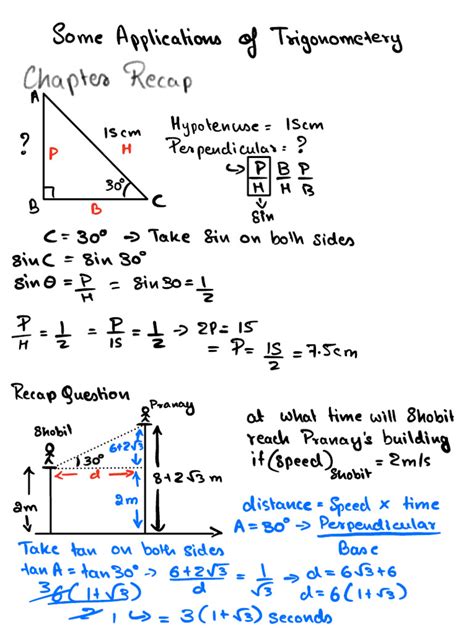 Some Applications of Trigonometery
Chapter Recap
A
?
P
15cm
H
30°
B
B
C
Hypotenuse = 15cm
Perpendicular = ?
P/H B/H P/B
Sin
C = 30° → Take Sin on both sides
Sin C = Sin 30°
Sin θ = P/H = Sin 30 = 1/2
P/H = 1/2 = P/15 = 1/2 → 2P = 15
= P = 15/2 = 7.5cm
Recap Question
Shobit
Pranay
6+2√3
30°
d
2m
2m
8+2√3 m
at what time will Shobit
reach Pranay's building
if (speed)Shobit = 2m/s
distance = Speed × time
A = 30° → Perpendicular/Base
Take tan on both sides
tan A = tan 30° → 6+2√3/d = 1/√3 → d = 6√3+6
d = 6(1+√3)
3 6(1+√3)/2 1 → = 3(1+√3) seconds